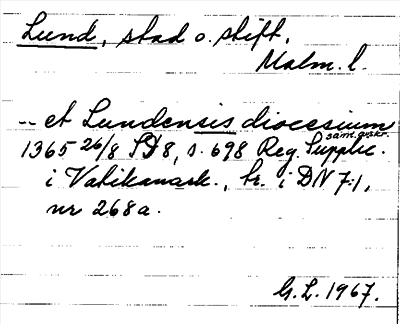 Lund, stad o. stift,
Malm. l.
-- et Lundensis diocesium
sam. avskr.
1365 26/8 SD 8, s. 698 Reg. Supplic.
i Vatikanark., tr. i DN 7:1,
nr 268a.
G. L. 1967.